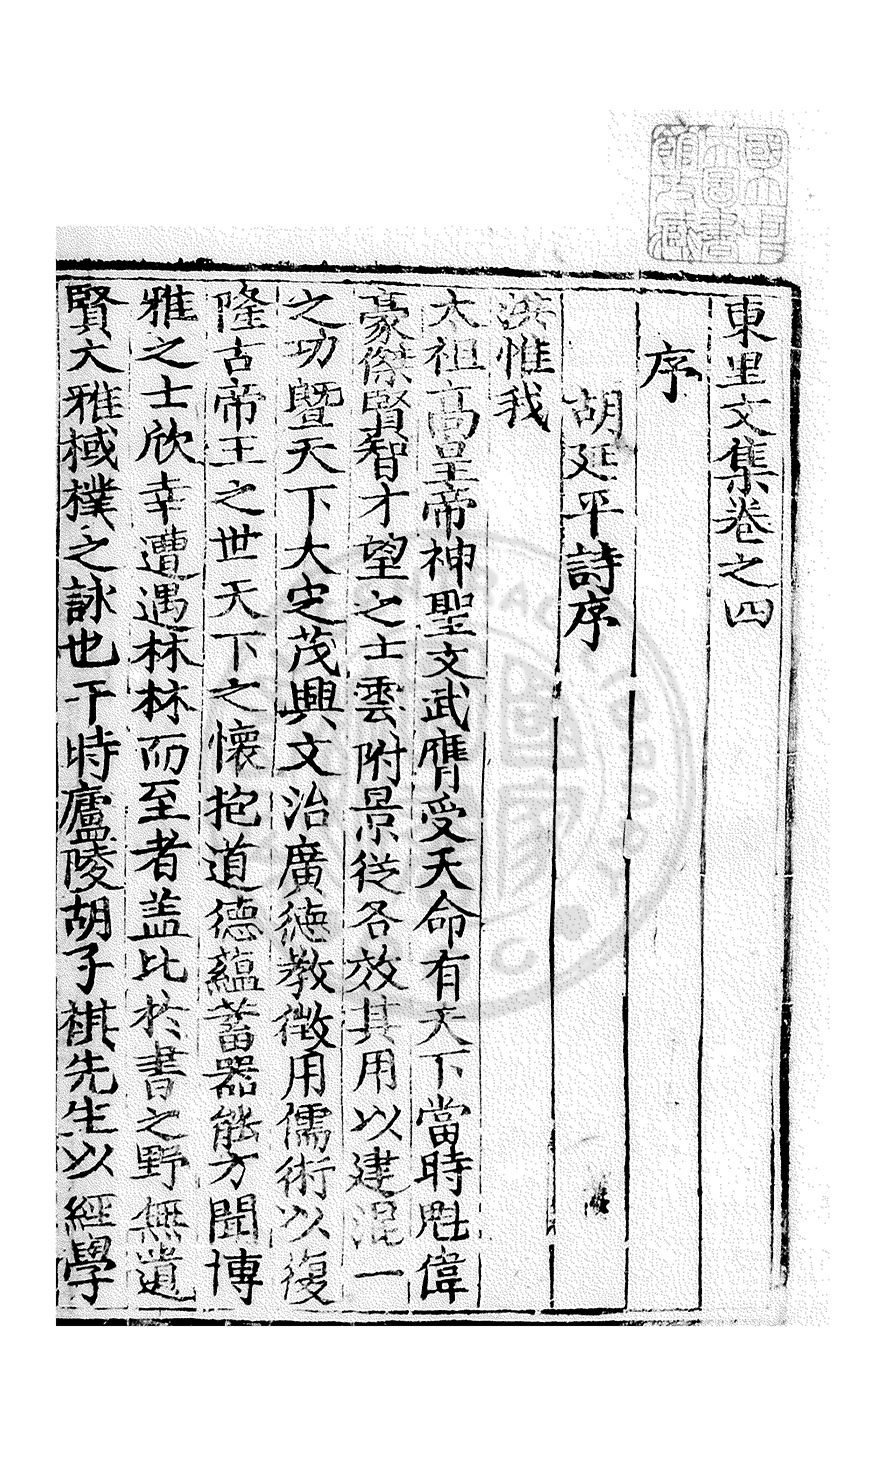 東里文集卷之四
序
胡延平詩序
洪惟我
太祖高皇帝神聖文武膺受天命有天下當時魁偉
豪傑賢智才望之士雲附景從各效其用以建混一
之功暨天下大定茂興文治廣德教徵用儒術以復
隆古帝王之世天下之懷抱道德蘊蓄器能方聞博
雅之士欣幸遭遇林林而至者盖比於書之野無遺
賢大雅棫樸之詠也于時廬陵胡子祺先生以經學